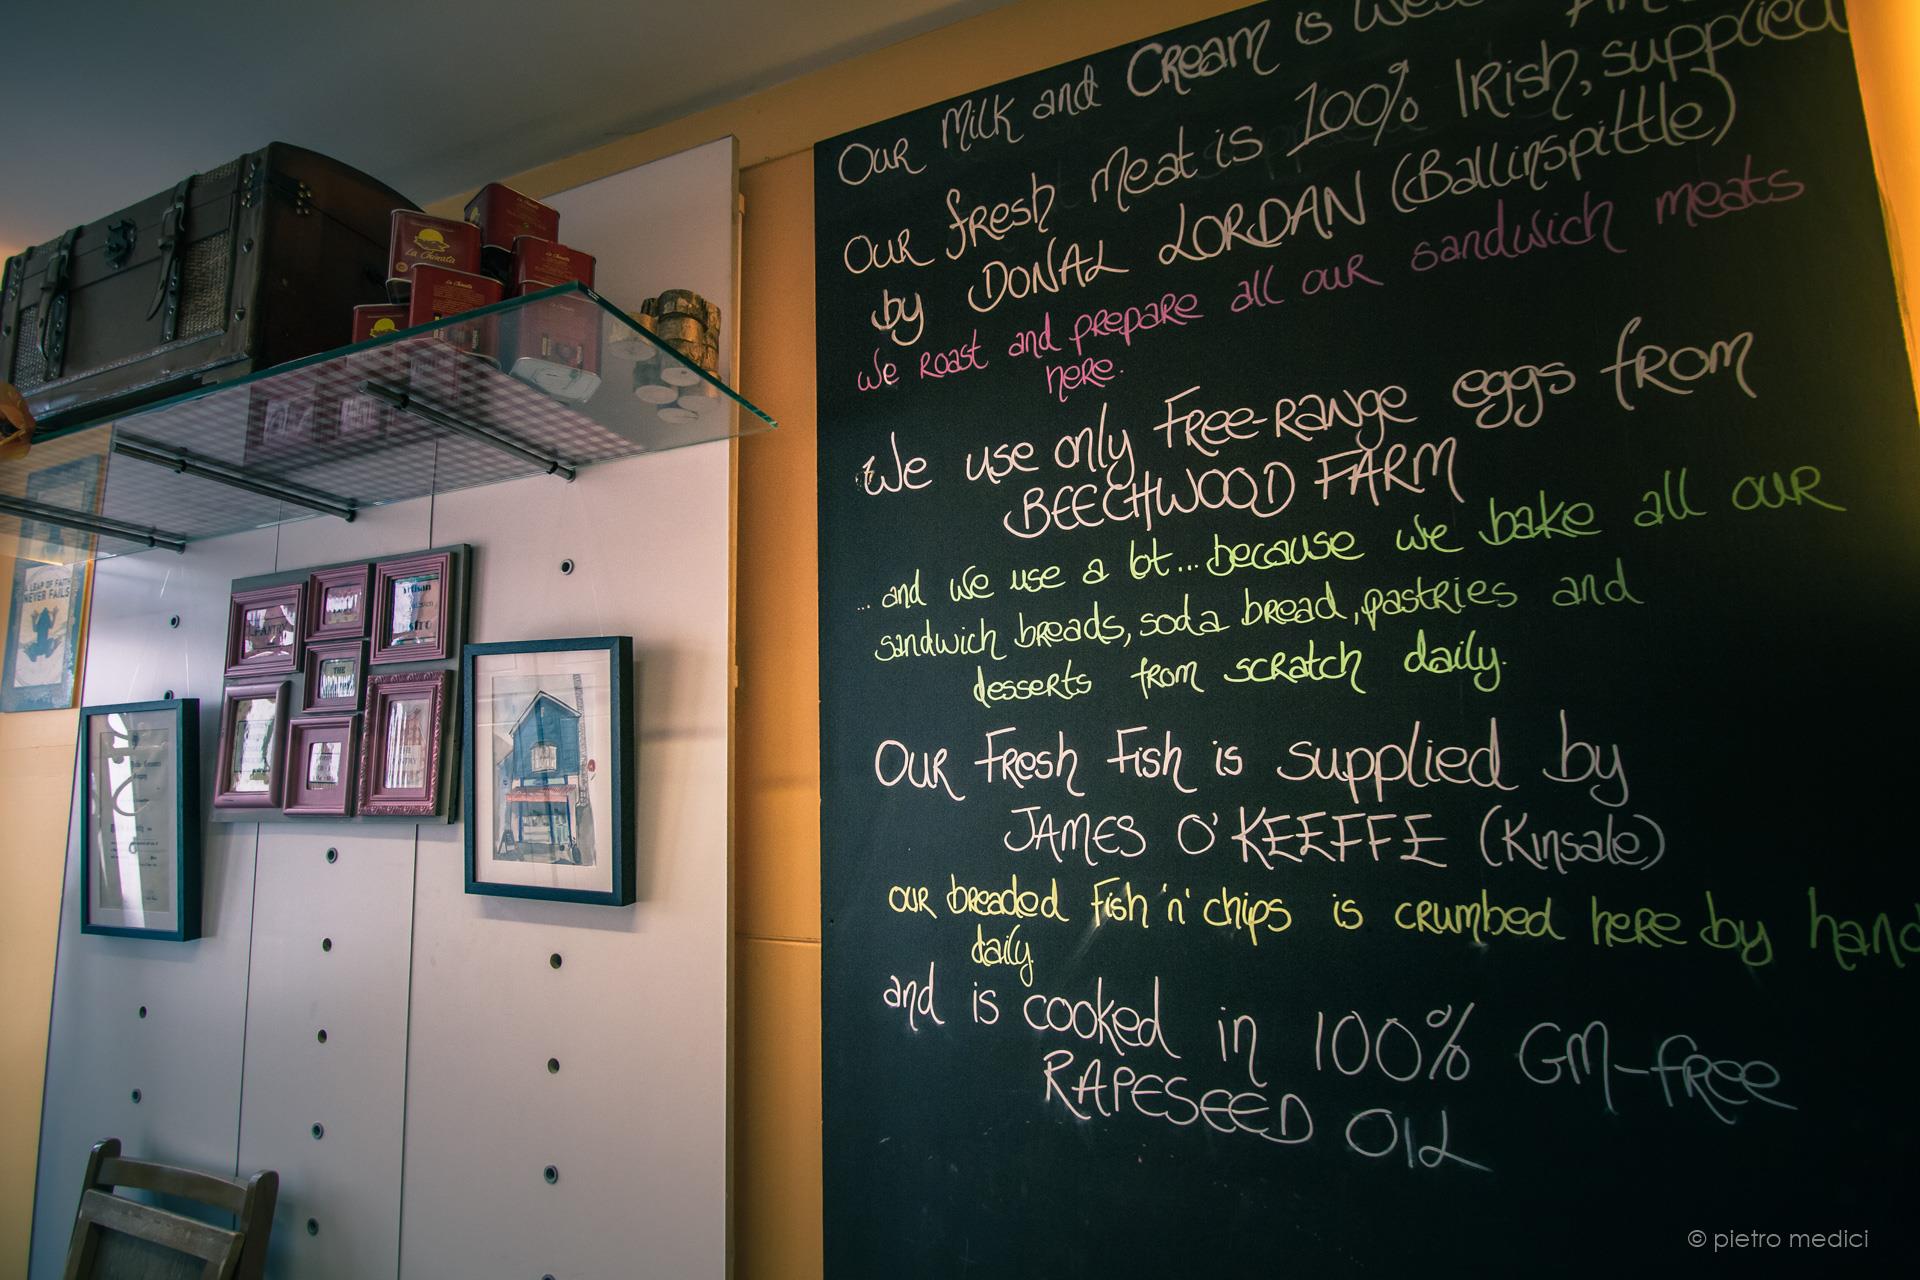 Our Milk and Cream is
Our fresh meat is 100% Irish, supplied
by DONAL LORDAN (Ballinspittle)
We roast and prepare all our sandwich meats
here.
We use only Free-Range eggs from
BEECHWOOD FARM
... and we use a lot... because we bake all our
sandwich breads, soda bread, pastries and
desserts from scratch daily.
Our Fresh Fish is supplied by
JAMES O'KEEFFE (Kinsale)
our breaded Fish 'n' chips is crumbed here by hand
daily.
and is cooked in 100% GM-free
RAPESEED OIL
La Chinata
La Chinata
La Chinata
A LEAP OF FAITH
NEVER FAILS
PANTRY
Artisan
THE
© pietro medici